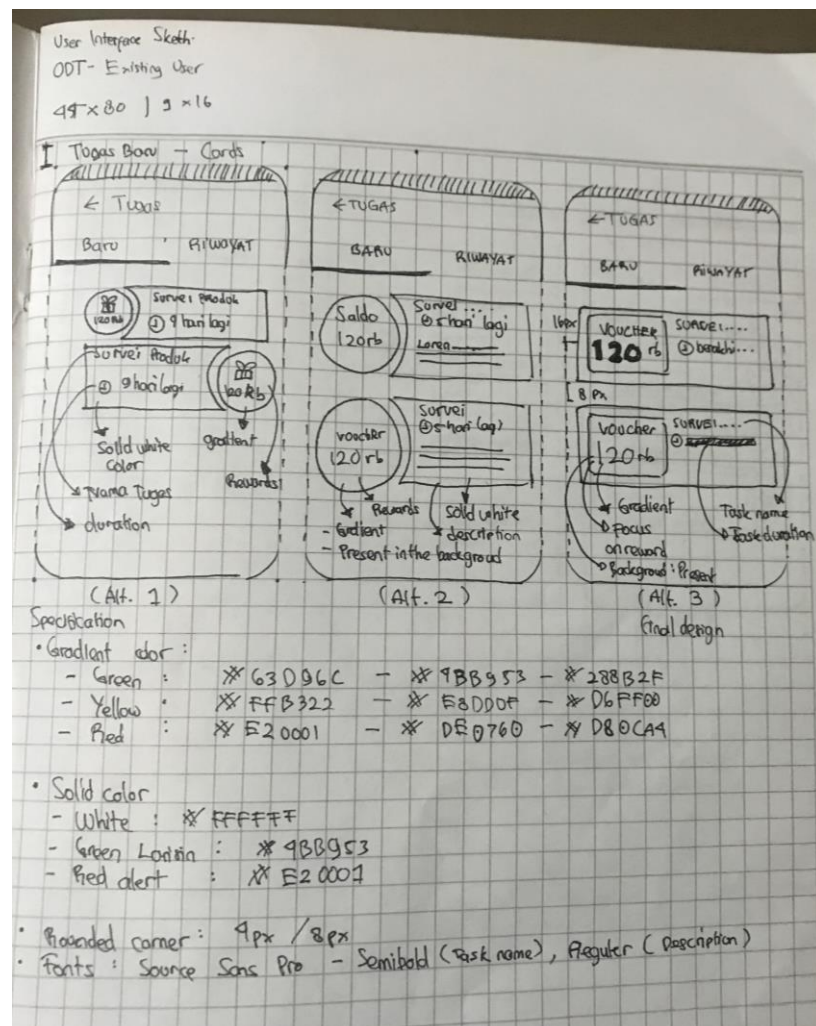 User Interface Sketh.
ODT - Existing User
45 x 80 | 9 x 16
I. Tugas Baru - Cards
← Tugas
Baru
RIWAYAT
120Rb
Survei Produk
9 hari lagi
Survei Produk
9 hari lagi
120Rb
Solid white color
gradient
Rewards
Nama Tugas
duration
(Alt. 1)
← TUGAS
BARU
RIWAYAT
Saldo
120rb
Survei ...
5 hari lagi
Voucher
120 rb
Survei
5 hari lagi
Rewards
Solid white
- Gradient
description
- Present in the backgroud
(Alt. 2)
← TUGAS
BARU
RIWAYAT
16px
VOUCHER
120 rb
SURVEI....
8 Px
Voucher
120 rb
SURVEI....
Gradient
Focus
on reward
Backgroud : Present
Task name
Task duration
(Alt. 3)
final design
Specification
• Gradient color :
- Green : # 63D96C - # 4BB953 - # 288B2F
- Yellow : # FFB322 - # E8DD0F - # D6FF00
- Red : # E20001 - # DE0760 - # D80CA4
• Solid color
- White : # FFFFFF
- Green : # 4BB953
- Red alert : # E20001
• Rounded corner : 4px / 8px
• Fonts : Source Sans Pro - Semibold (Task name), Reguler (Description)